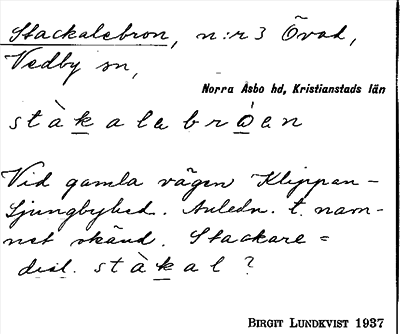 Stackalebron, n:r 3 Övad,
Vedby sn,
Norra Åsbo hd, Kristianstads län
stàkalebróen
Vid gamla vägen Klippan-
Ljungbyhed. Anledn. t. nam-
net okänd. Stackare =
dial. stàkal?
BIRGIT LUNDKVIST 1937